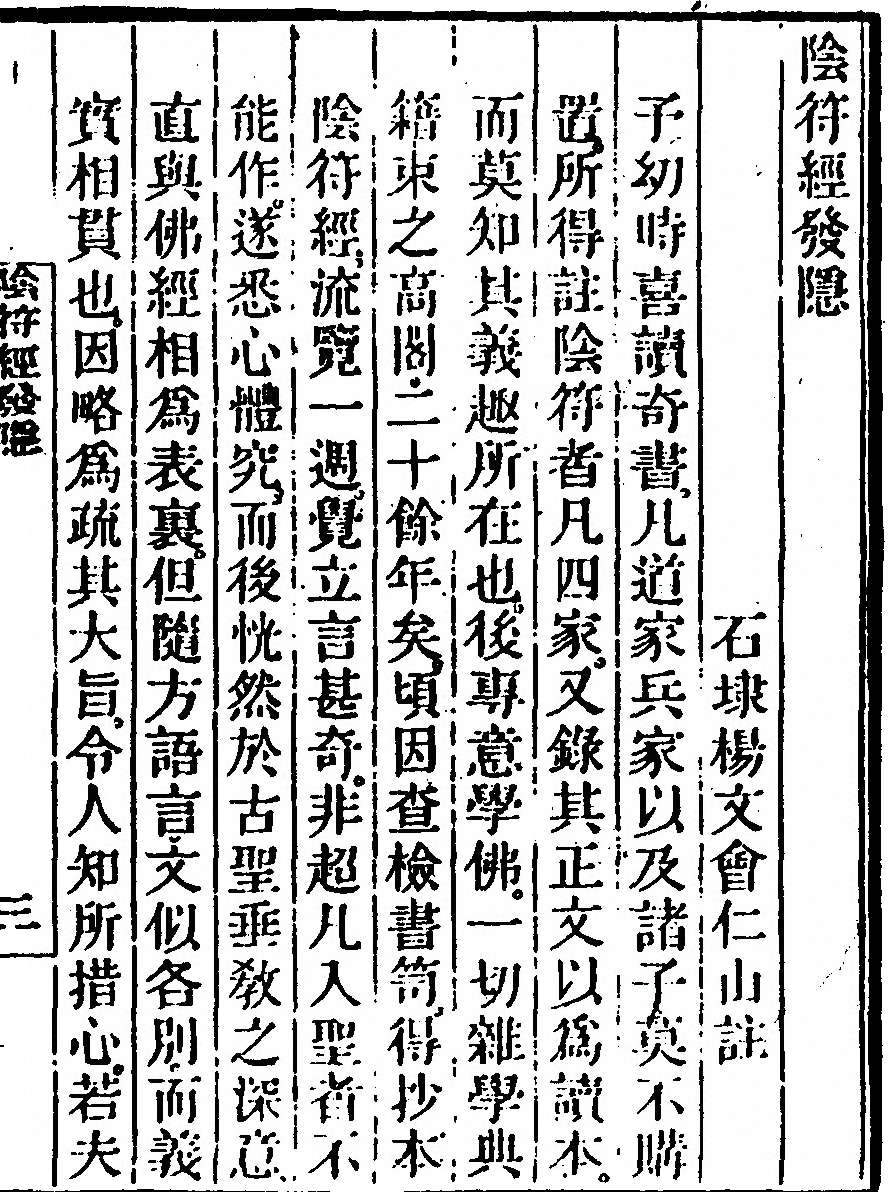 陰符經發隱
石埭楊文會仁山註
予幼時喜讀奇書,凡道家兵家以及諸子莫不購
置,所得註陰符者凡四家。又錄其正文以爲讀本。
而莫知其義趣所在也。後專意學佛。一切雜學典
籍束之高閣。二十餘年矣,頃因查檢書笥,得抄本
陰符經,流覽一週,覺立言甚奇。非超凡入聖者不
能作。遂悉心體究,而後恍然於古聖垂敎之深意、
直與佛經相爲表裏。但隨方語言文似各別,而義
實相貫也。因略爲疏其大旨,令人知所措心。若夫
陰符經發隱
三